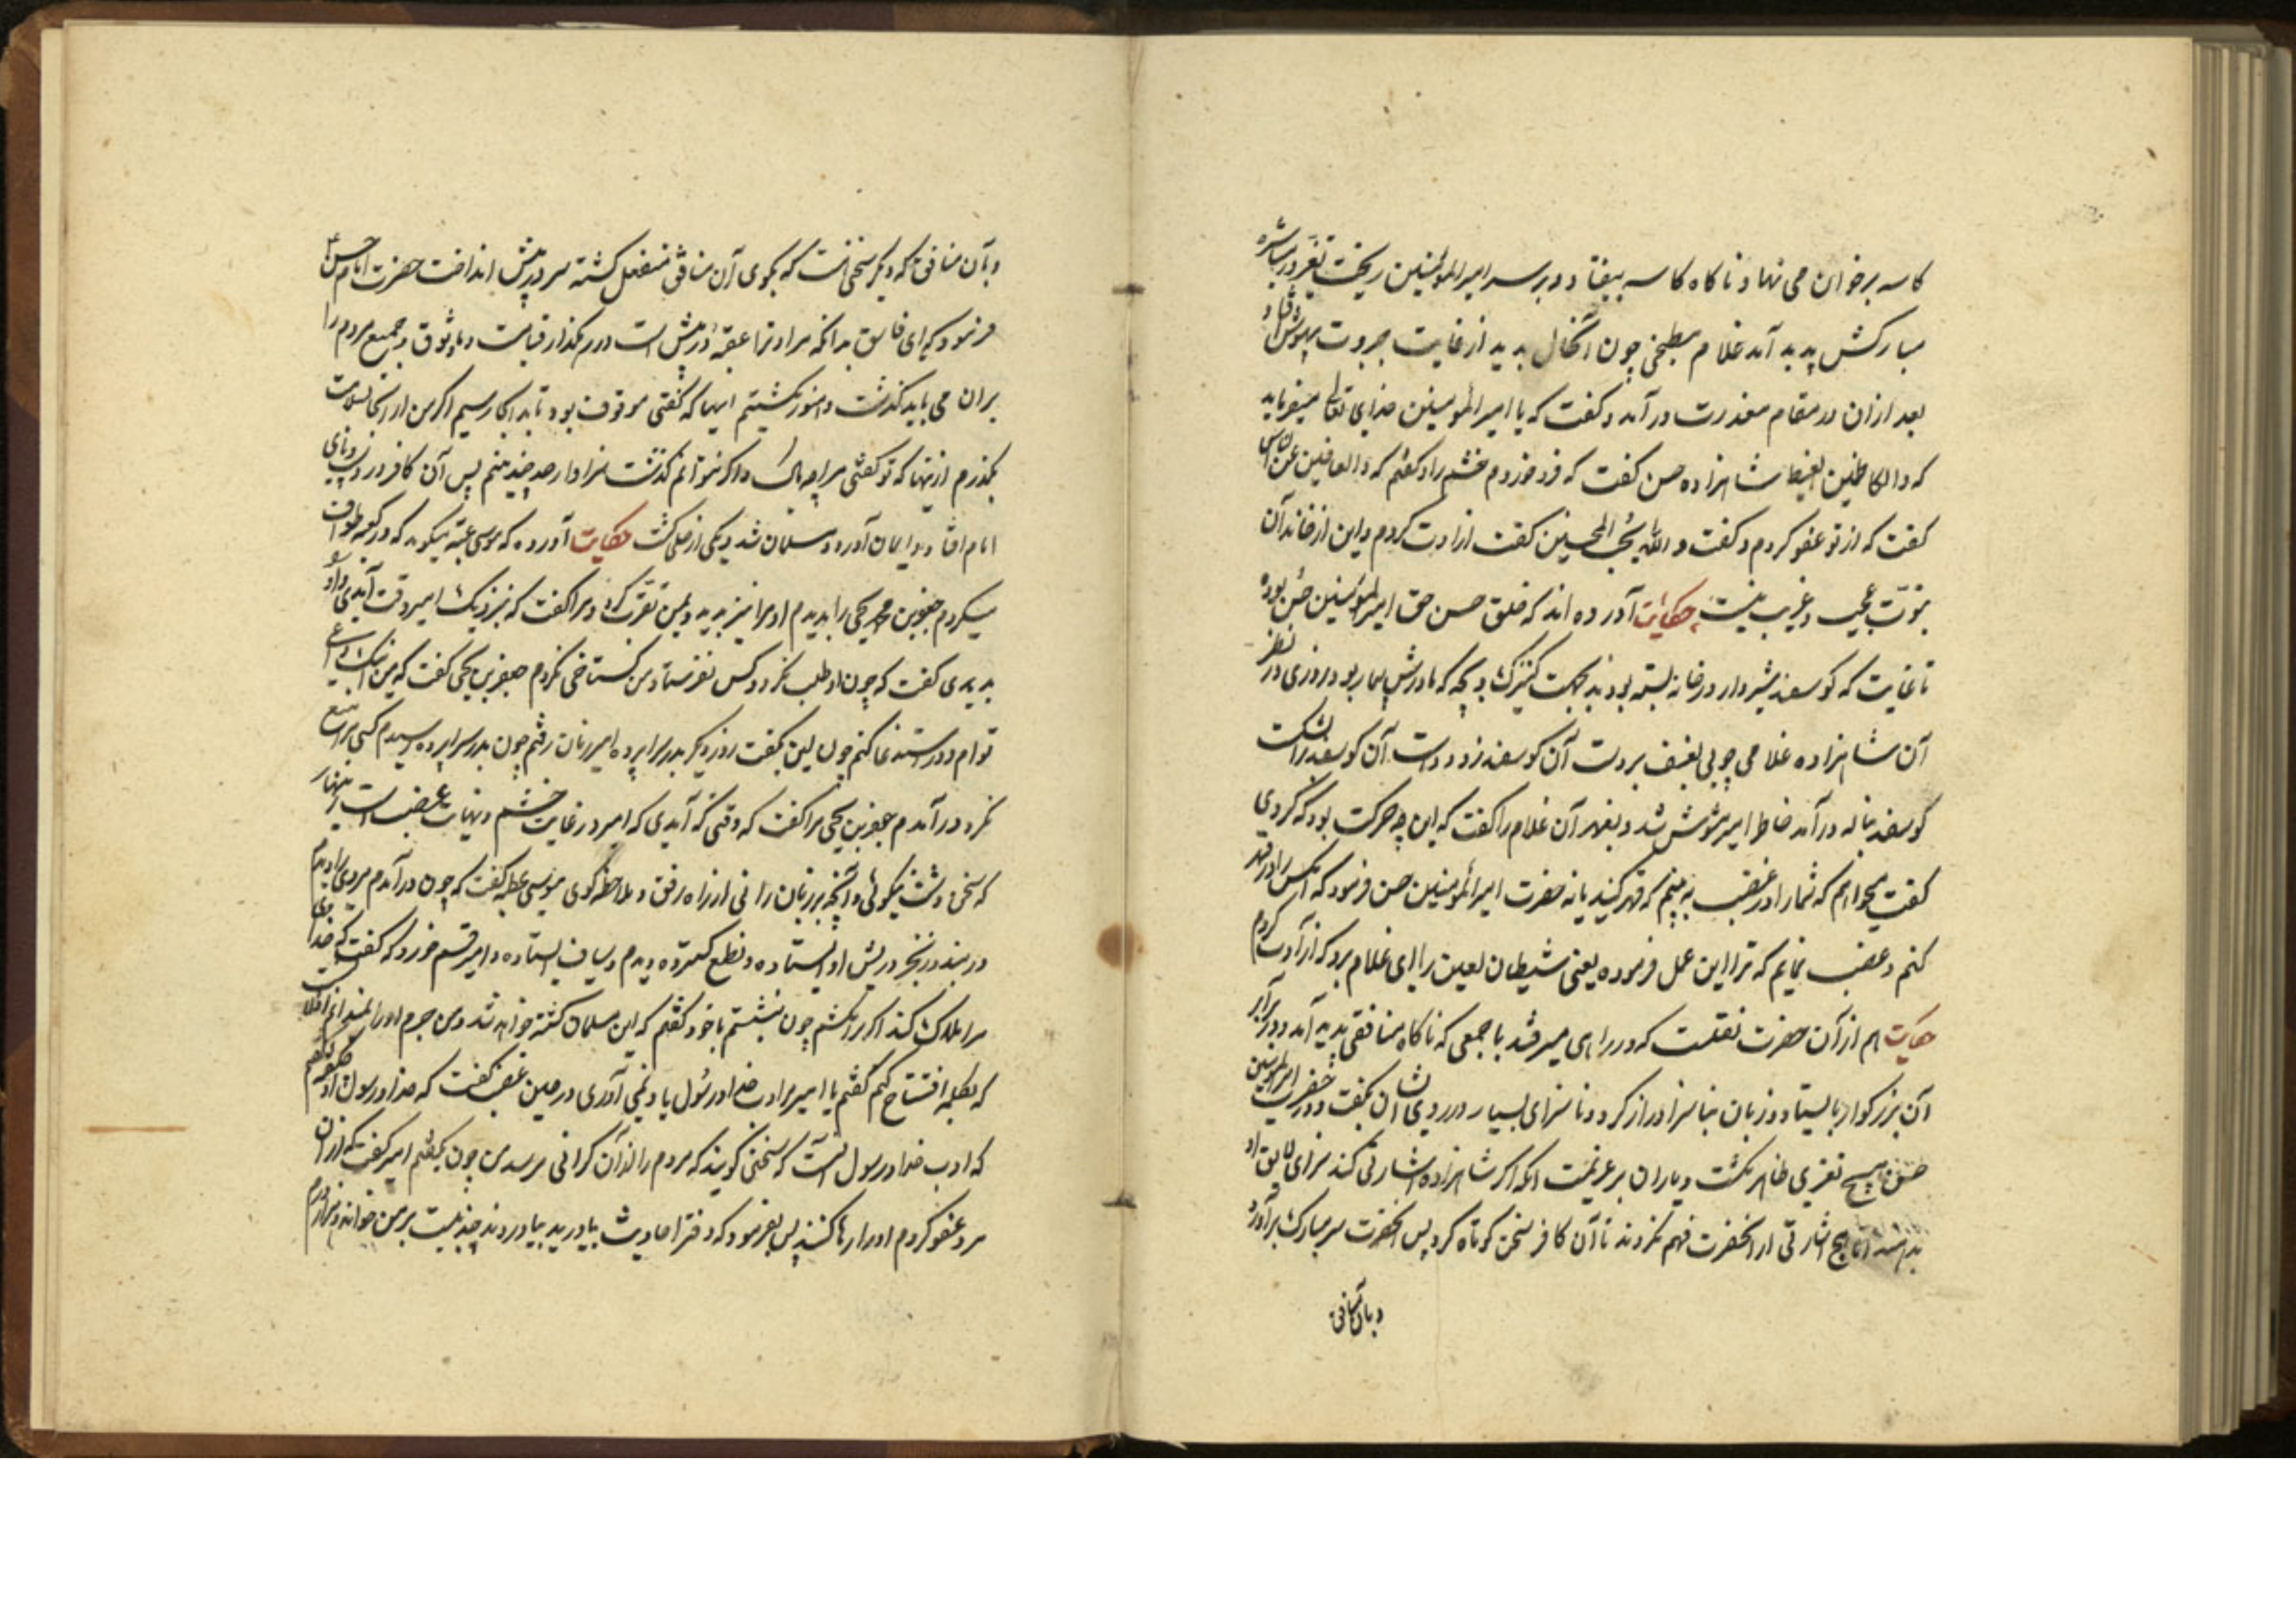 کاسه برخوان می نهاد ناکاه کاسه بیفتاد و بر سر امیرالمؤمنین ریخت تغیر در بشره
مبارکش پدید آمد غلام مطبخی چون آنحال بدید از غایت جبروت بیهوش افتاد
بعد ازان در مقام معذرت در آمد و کفت که یا امیرالمؤمنین خدای تعالی میفرماید
که والکاظمین الغیظ شاهزاده حسن کفت که فرو خوردم خشم را و کفتم که والعافین عن الناس
کفت که از تو عفو کردم و کفت والله یحب المحسنین کفت ازادت کردم و این از خاندان
نبوت عجیب و غریب نیست حکایت آورده اند که خلق حسن حق امیرالمؤمنین حسن بوده
تا غایت که کوسفند شیردار در خانه بسته بودند بجهت کنیزک بچه که مادرش بیمار بود و روزی در نظر
آن شاهزاده غلامی چوبی بعنف بر دست آن کوسفند زد و دست آن کوسفند را شکست
کوسفند بناله در آمد خاطر امیر مشوش شد و بقهر آن غلام را کفت که این چه حرکت بود که کردی
کفت میخواهم که شما را در غضب به بینم که قهر کنید یا نه حضرت امیرالمؤمنین حسن فرمود که آنکس را در قهر
کنم و غضب نمایم که ترا این عمل فرموده یعنی شیطان لعین را ای غلام برو که ازادت کردم
حکایت هم از آن حضرت نقلست که در راهی میرفتند با جمعی که ناکاه منافقی پدید آمد و در برابر
آن بزرکوار بایستاد و زبان بناسزا دراز کرد و ناسزای بسیار در روی ایشان بکفت و در حضرت امیرالمؤمنین
حسن هیچ تغیری ظاهر نکشت و یاران بر عزیمت آنکه اکر شاهزاده اشارتی کند سزای لایق او
بدهند اما هیچ اشارتی از انحضرت فهم نکردند تا آن کافر سخن کوتاه کرد پس انحضرت سر مبارک برآورد
و بآن منافق
و بآن منافق که دیکر سخن هست که بکوی آن منافق منفعل کشته سر در پیش انداخت حضرت امام حسن ع
فرمود که ای فاسق بدانکه مرا و ترا عقبه در پیش است در رهکذار قیامت و جمیع مردم را
بران می باید کذشت و هنوز نکذشتیم اینها که کفتی موقوف بود تا بدانجا رسیم اکر من از انجا بسلامت
بکذرم ازینها که تو کفتی مرا چه باک و اکر نتوانم کذشت سزاوار صد چندینم پس آن کافر در دست و پای
امام افتاد و ایمان آورد و مسلمان شد و یکی از خلص کشت حکایت آورده که موسی عتبه میکوید که در کعبه طواف
میکردم جعفر بن محمد یحیی را بدیدم او مرا نیز بدید و بمن تقرب کرد و مرا کفت که بنزدیک امیر وقت آیدی
بدیدی کفت که چون او طلب نکرد و کس نفرستاد من کستاخی نکردم جعفر بن یحیی کفت که من
توام و درستند عا کنم چون این بکفت روز دیکر بدر سراپرده امیر زمان رفتم چون بدر سراپرده رسیدم کسی مرا منع
نکرد در آمدم جعفر بن یحیی مرا کفت که وقتی آیدی که امیر در غایت خشم و نهایت غضب است زینهار
که سخن درشت نکوئی و آنچه بر زبان رانی از راه رفق و ملاحظه کوی موسی عتبه کفت که چون در آمدم مردی را دیدم
در بند و زنجیر در پیش او ایستاده و نطع کسترده دیدم و سیاف ایستاده و امیر قسم خورد که کفت که خدا
مرا هلاک کند اکر ترا نکشم چون بنشستم با خود کفتم که این مسلمان کشته خواهد شد و من جرم او را
که بکلمه افتتاح کنم کفتم یا امیر مرا ادب خدا و رسول یاد نمی آوری در عین غضب کفت که خدا و رسول
که ادب خدا و رسول آنست که سخنی کویند که مردم را از آن کرانی نرسد من چون بکفتم امیر کفت که ازان
مرد عفو کردم او را رها کنند پس بفرمود که دفتر احادیث بیاورید بیاوردند چند بیت بر من خواند